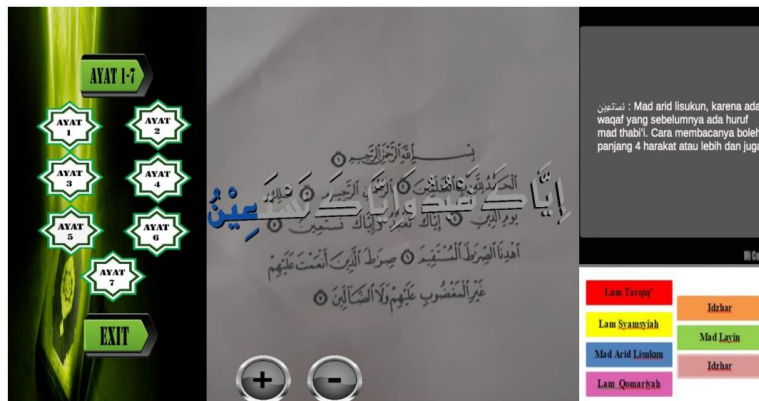 AYAT 1-7
AYAT 1
AYAT 2
AYAT 3
AYAT 4
AYAT 5
AYAT 6
AYAT 7
EXIT
بِسْمِ اللَّهِ الرَّحْمَنِ الرَّحِيمِ ۝١
الْحَمْدُ لِلَّهِ رَبِّ الْعَالَمِينَ ۝٢ الرَّحْمَنِ الرَّحِيمِ ۝٣
إِيَّاكَ نَعْبُدُ وَإِيَّاكَ نَسْتَعِيْنُ
يَوْمِ الدِّينِ ۝٤ إِيَّاكَ نَعْبُدُ وَإِيَّاكَ نَسْتَعِينُ ۝٥
اهْدِنَا الصِّرَاطَ الْمُسْتَقِيمَ ۝٦ صِرَاطَ الَّذِينَ أَنْعَمْتَ عَلَيْهِمْ
غَيْرِ الْمَغْضُوبِ عَلَيْهِمْ وَلَا الضَّالِّينَ ۝٧
+ -
نستعين : Mad arid lisukun, karena ada
waqaf yang sebelumnya ada huruf
mad thabi'i. Cara membacanya boleh
panjang 4 harakat atau lebih dan juga
Lam Tarqiq'
Lam Syamsyiah
Mad Arid Lisukun
Lam Qomariyah
Idzhar
Mad Layin
Idzhar